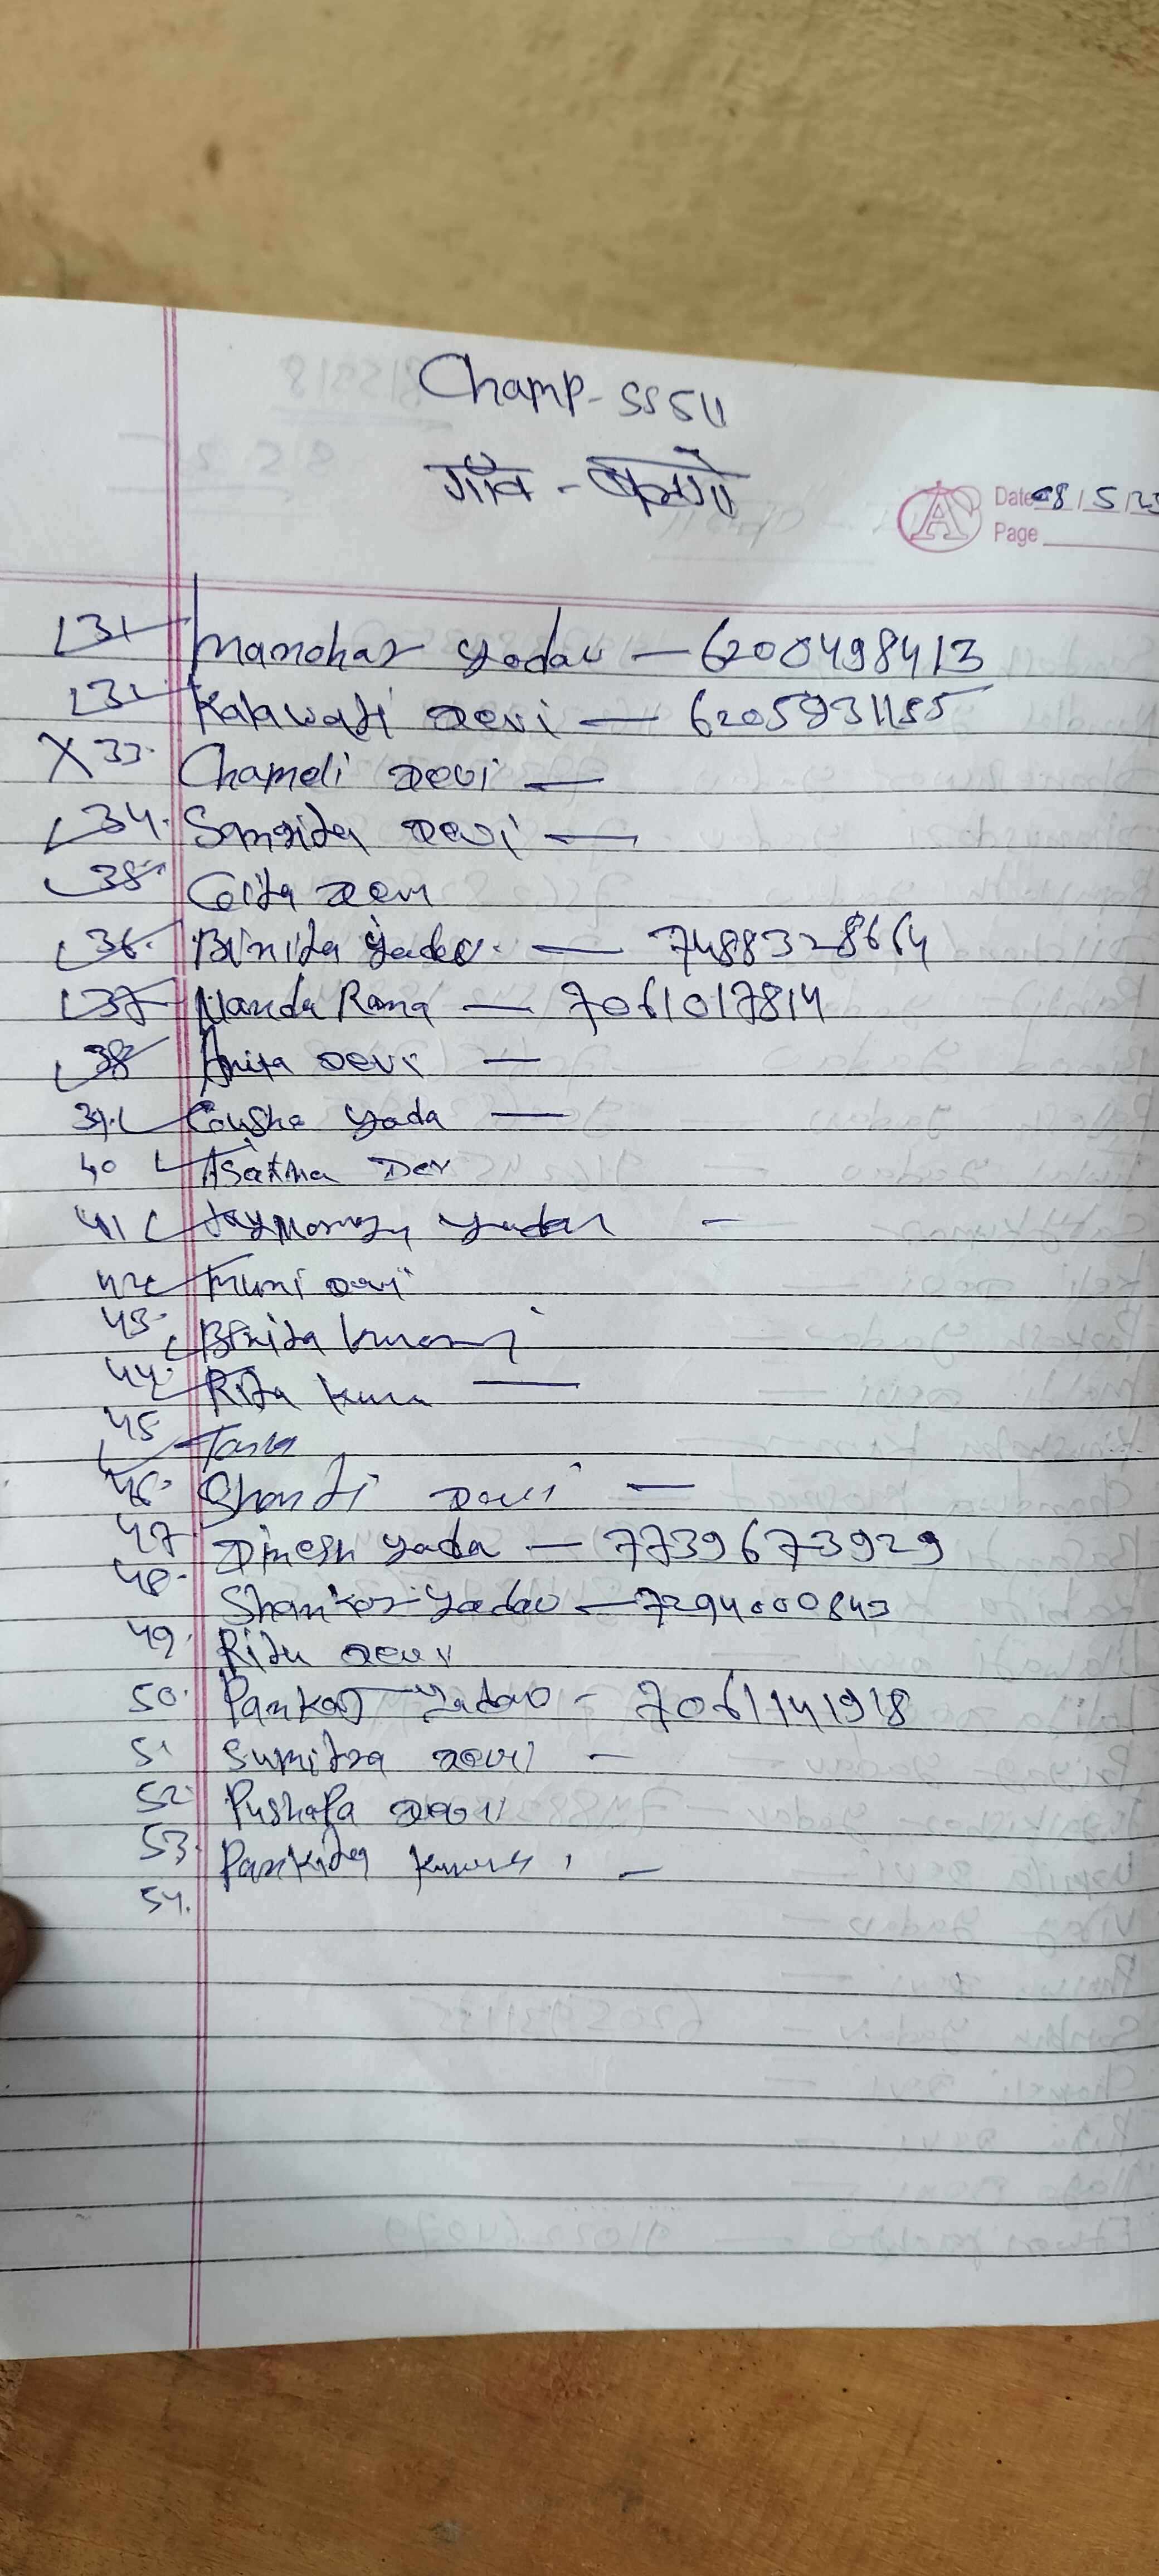 Champ - SS511
गाँव -
Date 08/5/23
Page
31 Manohar yadav — 6200498413
32 Kalawati Devi — 6205931155
X 33. Chameli Devi —
34. Sangita Devi —
35 Gita Devi
36. Binita Yadav. — 7488328664
37 Nanda Rana — 7061017814
38 Anita Devi —
39. yada —
40 Dev
41 yadav —
42 Muni Devi
43. Binita kumari
44. Rita kuma —
45
46. Shanti Devi —
47 Dinesh yada — 7739673929
48. Shankar yadav — 7294000843
49. Ritu Devi
50. Pankaj Yadav - 7061141918
51 Sumitra Devi —
52. Pushpa Devi
53. kumari —
54.